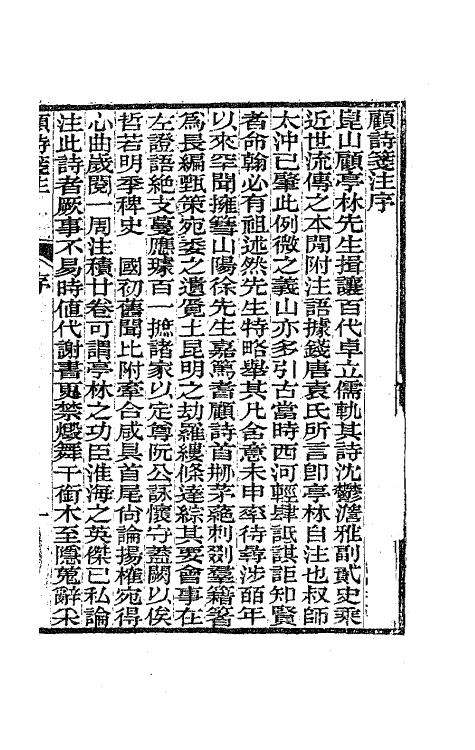 顧詩箋注序
崑山顧亭林先生揖讓百代卓立儒軌其詩沈鬱澹雅副貳史乘
近世流傳之本閒附注語據錢唐袁氏所言卽亭林自注也叔師
太沖已肇此例微之義山亦多引古當時西河輕肆詆諆詎知賢
者命翰必有祖述然先生特略舉其凡含意未申率待尋涉百年
以來罕聞擁篲山陽徐先生嘉篤耆顧詩首刱茅蕝刺剟羣籍箸
爲長編甄策宛委之遺覓土昆明之劫羅縷條達綜其要會事在
左證語絕支蔓應璩百一摭諸家以定尊阮公詠懷守蓋闕以俟
哲若明季稗史 國初舊聞比附牽合咸具首尾尙論揚搉宛得
心曲歲閱一周注積廿卷可謂亭林之功臣淮海之英傑已私論
注此詩者厥事不易時値代謝書䍐禁燬舞干銜木至隱蒐辭采
顧詩箋注 序 一